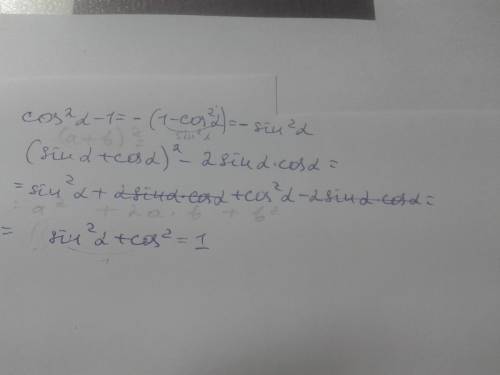 cos²α-1=-(1-cos²α)=-sin²α
sin²α
(a+b)²=
(sinα+cosα)²-2sinα·cosα=
=sin²α+2sinα·cosα+cos²α-2sinα·cosα=
= a² + 2a·b + b²
= sin²α+cos²=1
1